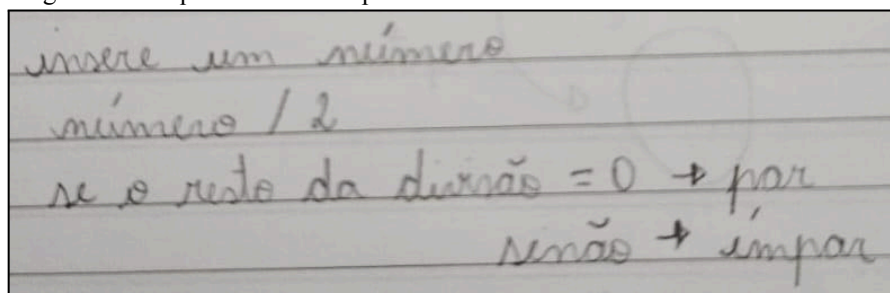 insere um número
número / 2
se o resto da divisão = 0 → par
senão → ímpar